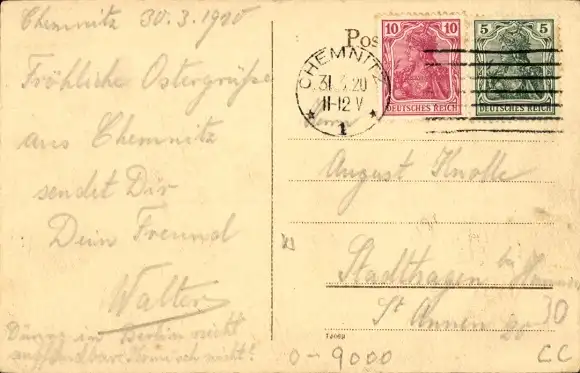 Chemnitz 30.3.1920
Fröhliche Ostergrüße
aus Chemnitz
sendet Dir
Dein Freund
Walter
in Berlin nicht
nicht!
Pos
CHEMNITZ
31.3.20
11-12 V
1
10 10
DEUTSCHES REICH
5 5
DEUTSCHES REICH
Herrn
August Knolle
Stadthagen bei
St Annen 20
0-9000
CC